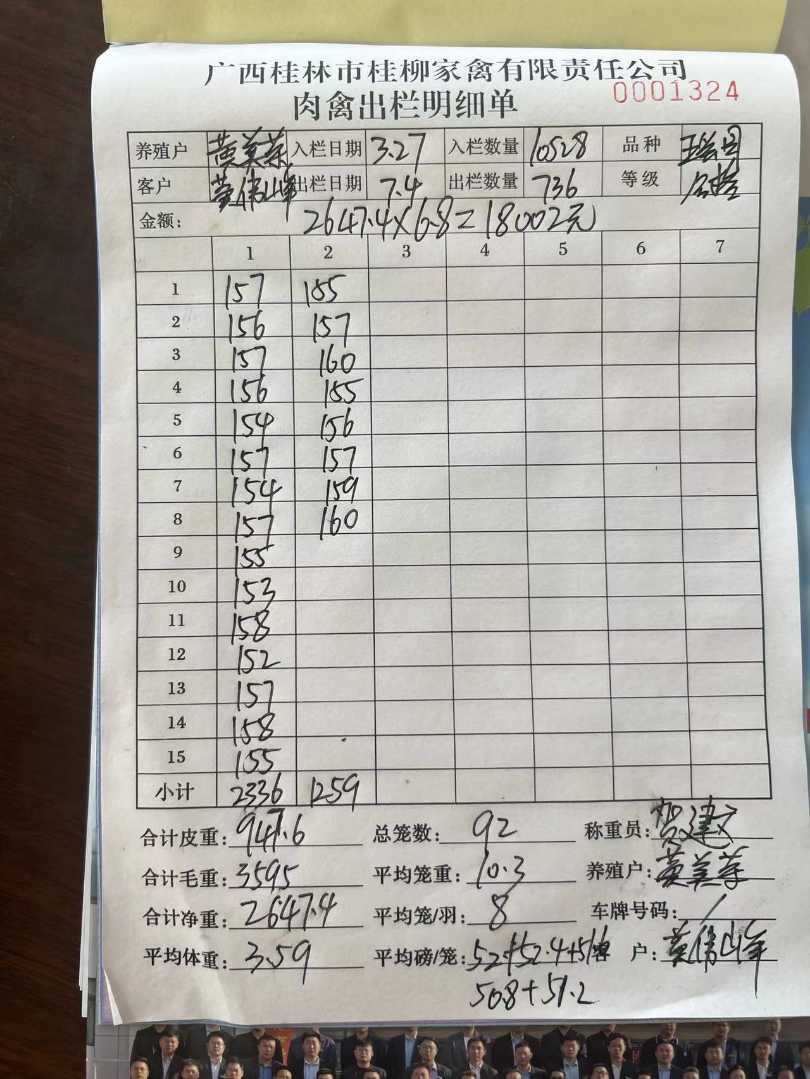 广西桂林市桂柳家禽有限责任公司
肉禽出栏明细单 0001324
养殖户 黄美荣 入栏日期 3.27 入栏数量 10528 品种
客户 黄伟山 出栏日期 7.4 出栏数量 736 等级
金额: 2647.4×6.8=18002元
1 2 3 4 5 6 7
1 157 155
2 156 157
3 157 160
4 156 155
5 154 156
6 157 157
7 154 159
8 157 160
9 155
10 153
11 158
12 152
13 157
14 158
15 155
小计 2336 1259
合计皮重: 947.6 总笼数: 92 称重员: 贺建文
合计毛重: 3595 平均笼重: 10.3 养殖户: 黄美荣
合计净重: 2647.4 平均笼/羽: 8 车牌号码: /
平均体重: 3.59 平均磅/笼: 户: 黄伟山
50.8+51.2